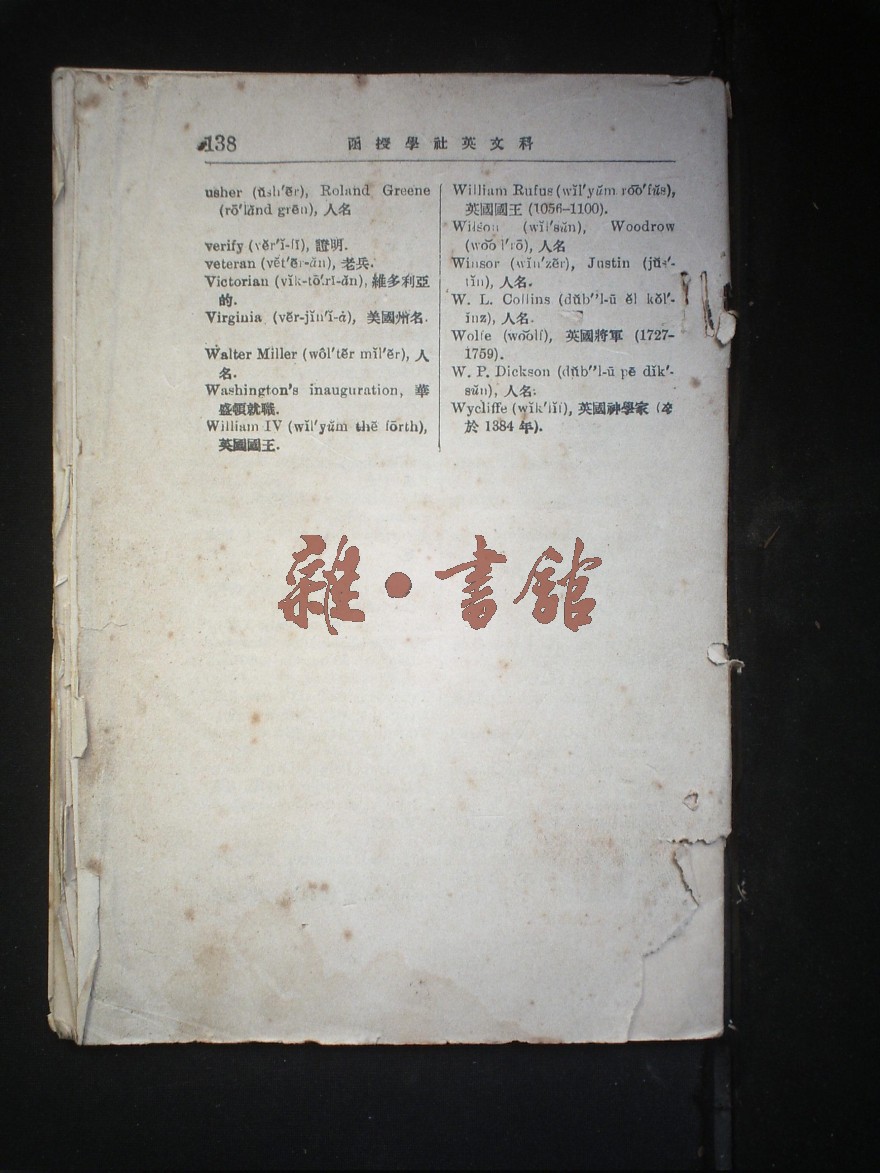 138
函授學社英文科
usher (ŭsh′ẽr), Roland Greene
(rō′lănd grēn), 人名
verify (vĕr′ĭ-fī), 證明.
veteran (vĕt′ẽr-ăn), 老兵.
Victorian (vĭk-tō′rĭ-ăn), 維多利亞
的.
Virginia (vẽr-jĭn′ĭ-ȧ), 美國州名.
Walter Miller (wôl′tẽr mĭl′ẽr), 人
名.
Washington's inauguration, 華
盛頓就職.
William IV (wĭl′yŭm thē fōrth),
英國國王.
William Rufus (wĭl′yŭm rōō′fŭs),
英國國王 (1056–1100).
Wilson (wĭl′sŭn), Woodrow
(wŏŏd′rō), 人名
Winsor (wĭn′zẽr), Justin (jŭs′-
tĭn), 人名.
W. L. Collins (dŭb″l-ū ĕl kŏl′-
ĭnz), 人名.
Wolfe (wŏŏlf), 英國將軍 (1727–
1759).
W. P. Dickson (dŭb″l-ū pē dĭk′-
sŭn), 人名.
Wycliffe (wĭk′lĭf), 英國神學家 (卒
於 1384 年).
雜·書館